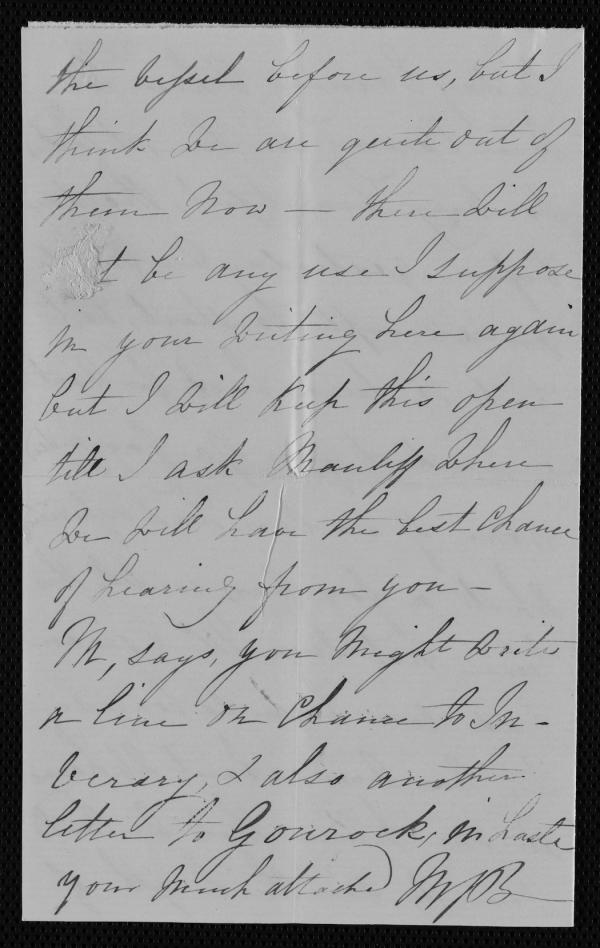 the vessel before us, but I
think we are quite out of
them now — there will
t be any use I suppose
in your writing here again
but I will keep this open
till I ask where
we will have the best chance
of hearing from you —
M, says, you might write
a line on chance to In-
verary, & also another
letter to Gourock, in haste
your much attached